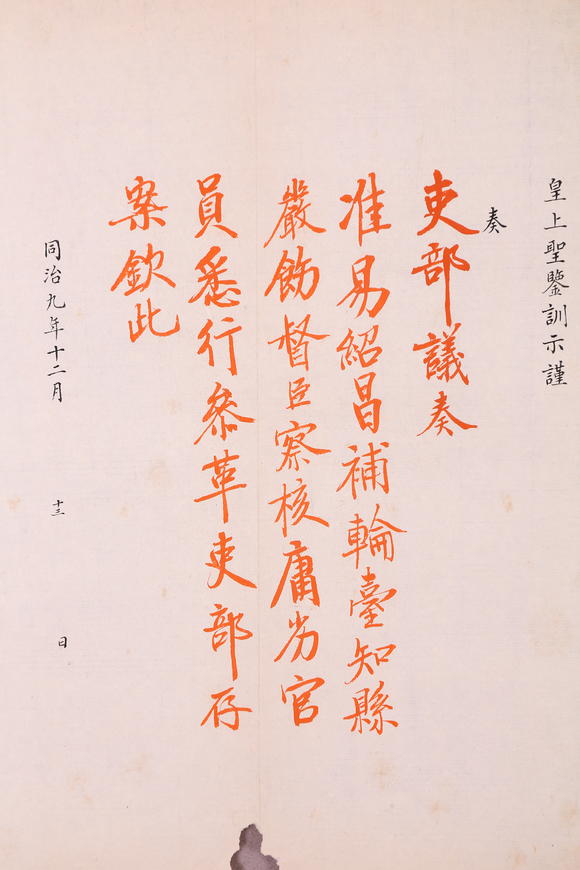 皇上聖鑒訓示謹
奏
吏部議奏
准易紹昌補輪臺知縣
嚴飭督臣察核庸劣官
員悉行叅革吏部存
案欽此
同治九年十二月 十三 日